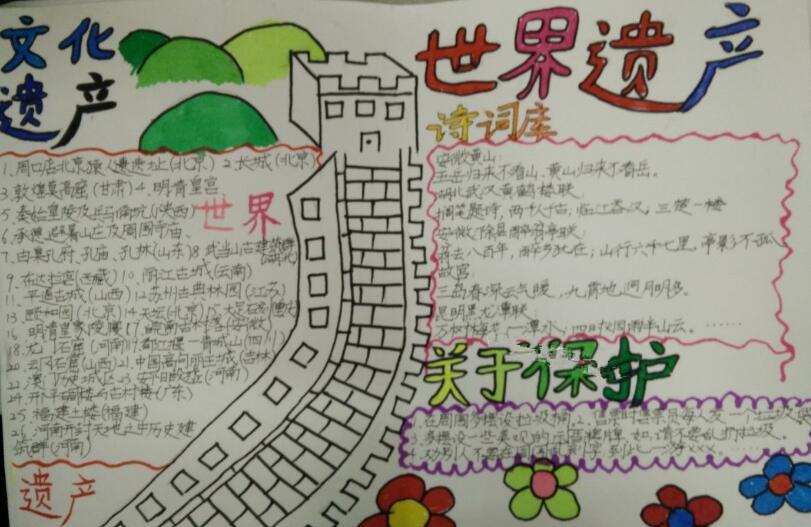 文化
遗产
1.周口店北京猿人遗址(北京) 2.长城(北京)
3.敦煌莫高窟(甘肃) 4.明清皇宫
5.秦始皇陵及兵马俑坑(陕西)
6.承德避暑山庄及周围寺庙.
7.曲阜孔府、孔庙、孔林(山东) 8.武当山古建筑群(湖北)
9.布达拉宫(西藏) 10.丽江古城(云南)
11.平遥古城(山西) 12.苏州古典园林(江苏)
13.颐和园(北京) 14.天坛(北京) 15.大足石刻(重庆)
16.明清皇家陵寝 17.皖南古村落(安徽)
18.龙门石窟(河南) 19.都江堰—青城山(四川)
20.云冈石窟(山西) 21.中国高句丽王城(吉林)
22.澳门历史城区 23.安阳殷墟(河南)
24.开平碉楼与古村落(广东)
25.福建土楼(福建)
26.河南登封天地之中历史建
筑群(河南)
世界
遗产
世界遗产
诗词库
安徽黄山:
五岳归来不看山、黄山归来不看岳。
湖北武汉黄鹤楼联
搁笔题诗,两千古;临江吞汉,三楚一楼
安徽滁县醉翁亭联:
翁去八百年,醉乡犹在;山行六七里,亭影不孤
故宫
昆明黑龙潭联
关于保护
1.在周围多摆设垃圾桶
3.多摆设一些美观的示警牌 如:请不要乱扔垃圾。